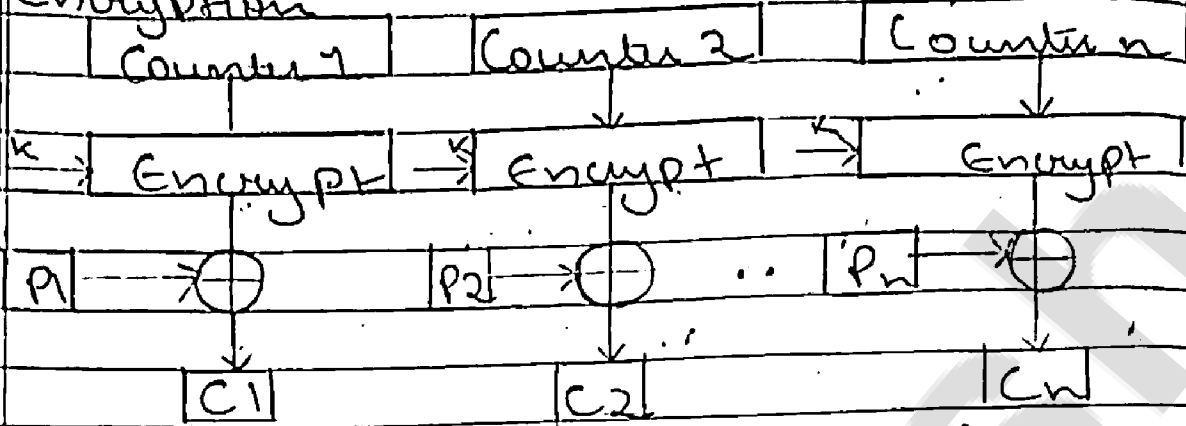 Encryption
Counter 1 Counter 2 Counter n
K Encrypt K Encrypt K Encrypt
P1 P2 .. Pn
C1 C2 Cn